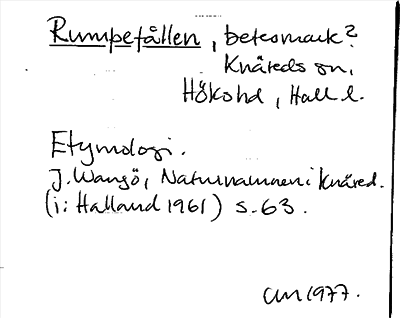 Rumpefållen, betesmark?
Knäreds sn,
Höks hd, Hall l.
Etymologi.
J. Wangö, Naturnamnen i Knäred.
(i: Halland 1961) s. 63.
1977.